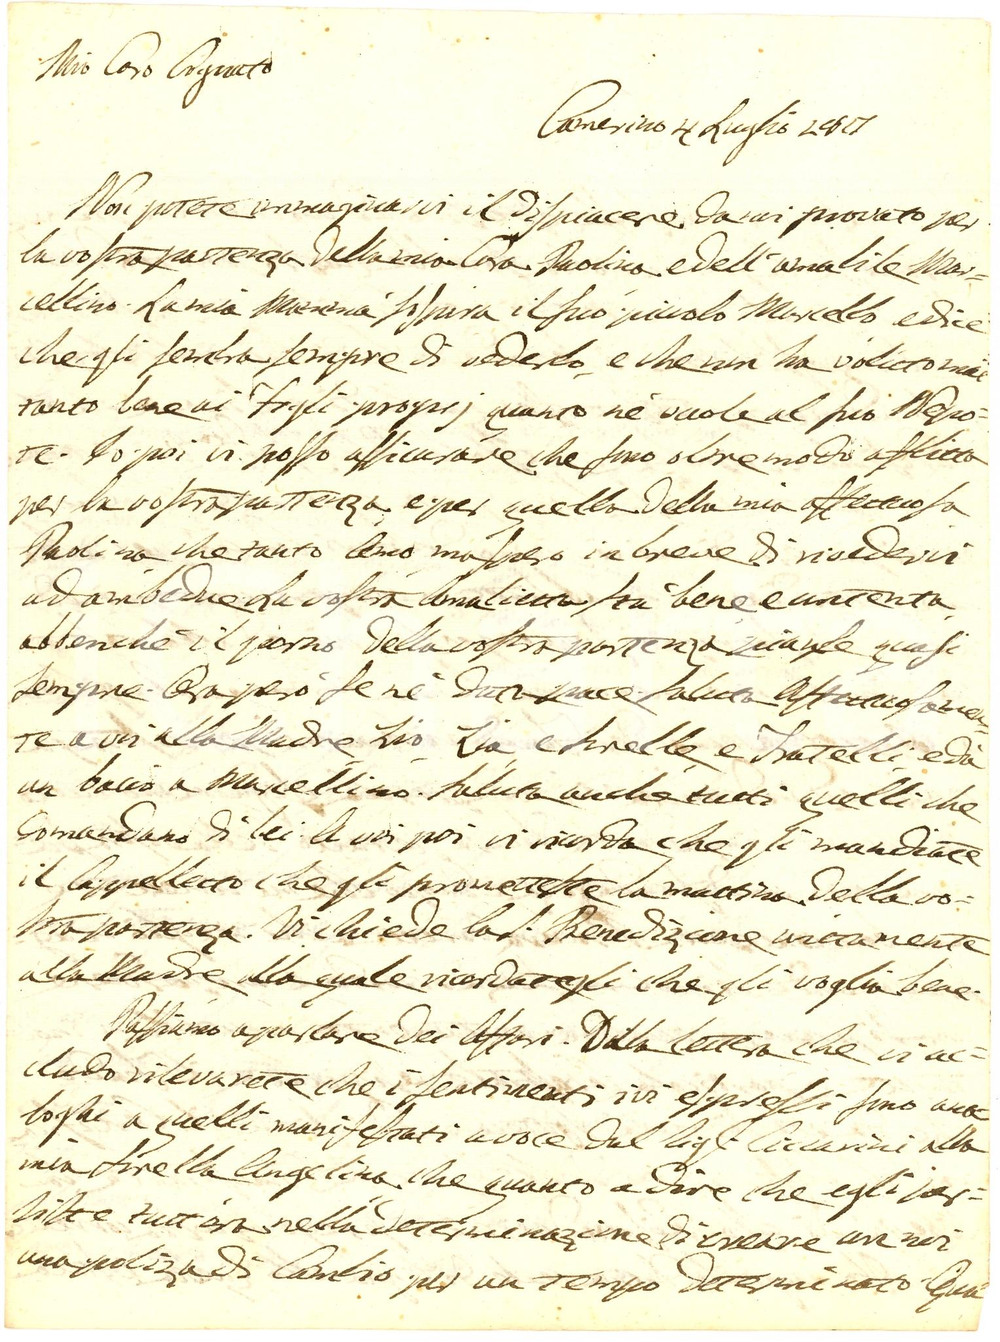 Mio Caro Cognato
Camerino 4 Luglio
Non potete immaginarvi il dispiacere da noi provato per
la vostra partenza della mia Cara Paolina e dell'amabile Mar-
cellino. La mia Mammà sospira il suo piccolo Marcello e dice
che gli sembra sempre di vederlo, e che non ha voluto mai
tanto bene ai Figli proprj quanto nè vuole al suo Nepo-
te. Io poi vi posso assicurare che sono oltre modo afflitta
per la vostra partenza, e per quella della mia affettuosa
Paolina che tanto amo ma spero in breve di rivedervi
ad ambedue. La vostra Amalietta stà bene e contenta,
abbenchè il giorno della vostra partenza pianse quasi
sempre. Ora però se nè data pace. Saluta Affettuosamen-
te a voi alla Madre, Zio, Zia, e Sorelle, e Fratelli, e dà
un bacio a Marcellino. Saluta anche tutti quelli che
Comandano di lei. A voi poi vi ricorda che gli mandiate
il Cappelletto che gli prometteste la mattina della vo-
stra partenza. Vi chiede la S. Benedizione unitamente
alla Madre alla quale ricordategli che gli voglia bene.
Passiamo a parlare dei Affari. Dalla lettera che vi ac-
cludo rileverete che i sentimenti ivi espressi sono ana-
loghi a quelli manifestati a voce dal Sig. Ciccarini alla
mia Sorella Angelina, che quanto a dire che egli per-
siste tuttora nella determinazione di creare con noi
una poliza di Cambio per un tempo determinato.